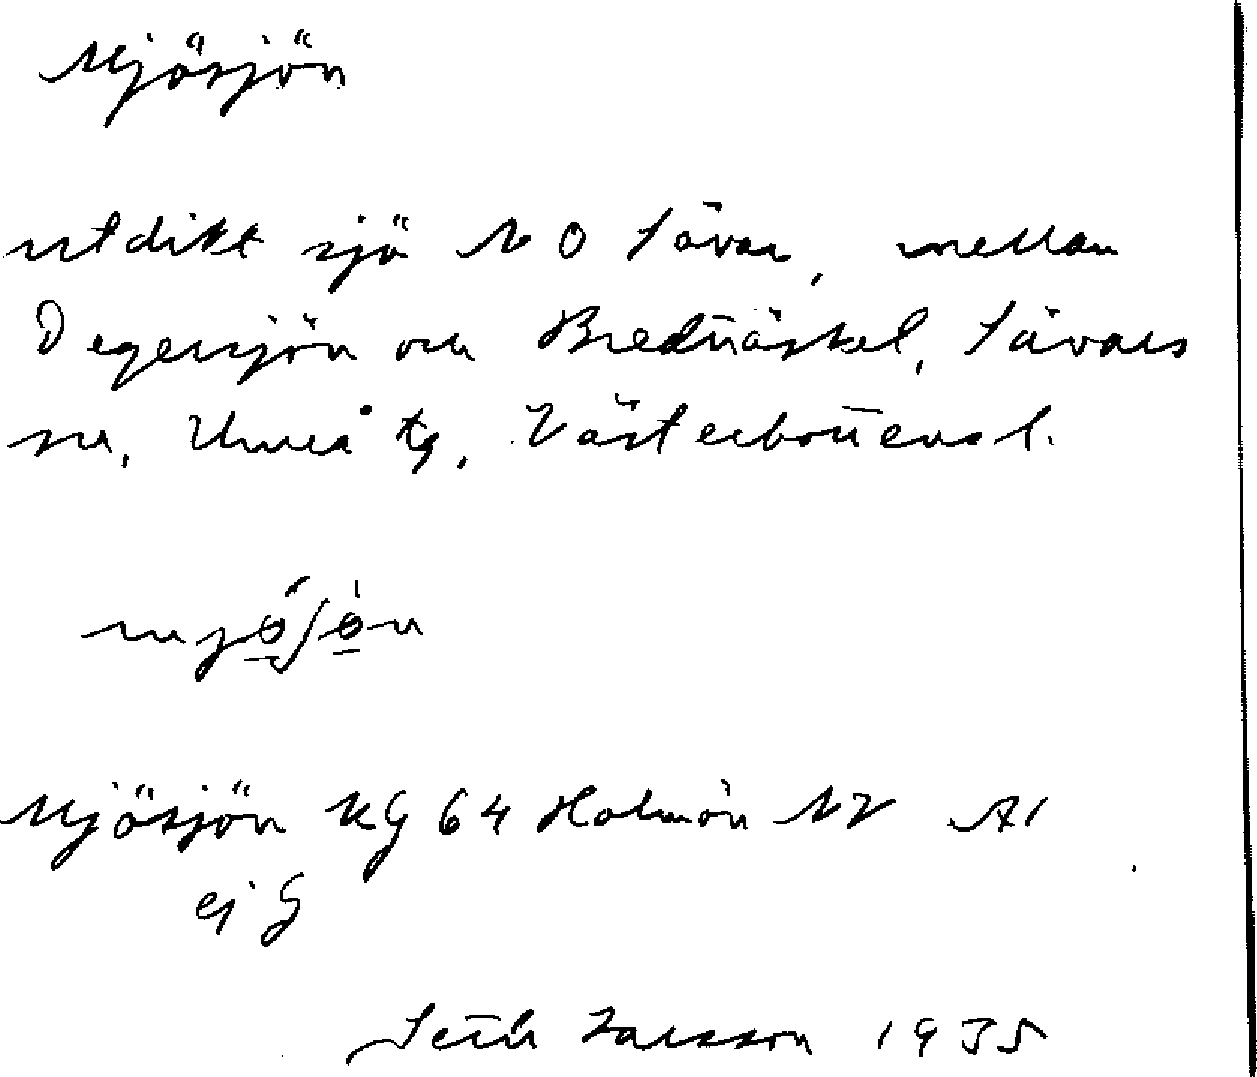 Mjösjön
utdikt sjö NO Sävar, mellan
Degersjön och Bredträsket, Sävars
sn, Umeå tg, Västerbottens l.
Mjösjön KG 64 Holmön NV A1
ej G
Larsson 1935